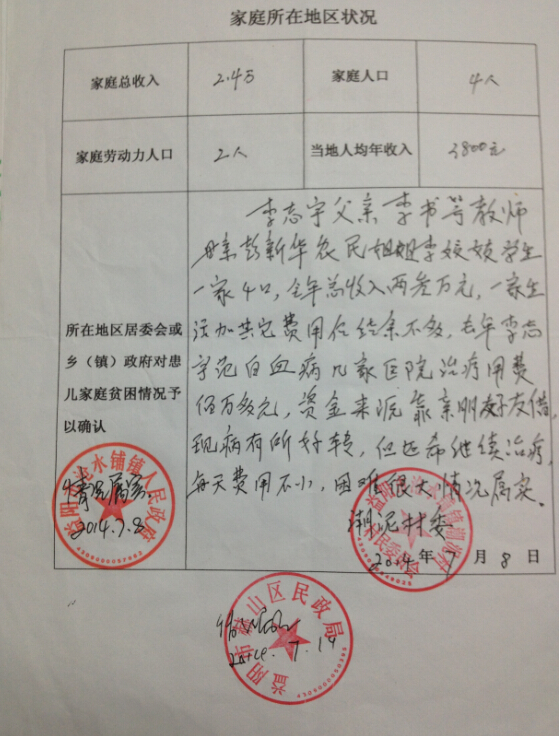 家庭所在地区状况
家庭总收入 2.4万 家庭人口 4人
家庭劳动力人口 2人 当地人均年收入 3800元
李志宇父亲李书芳教师
母亲彭新华农民姐姐李姣姣学生
一家4口,全年总收入两叁万元,一家生
活加其它费用位结余不多,去年李志
宇记白血病几家医院治疗用费
佰万多元,资金来源靠亲朋好友借,
现病有所好转,但还希继续治疗,
每天费用不小,困难很大情况属实.
潮泥村委
2014年7月8日
所在地区居委会或
乡(镇)政府对患
儿家庭贫困情况予
以确认
情况属实.
2014.7.8
益阳市沧水铺镇人民政府
益阳市赫山区民政局
2014.7.14